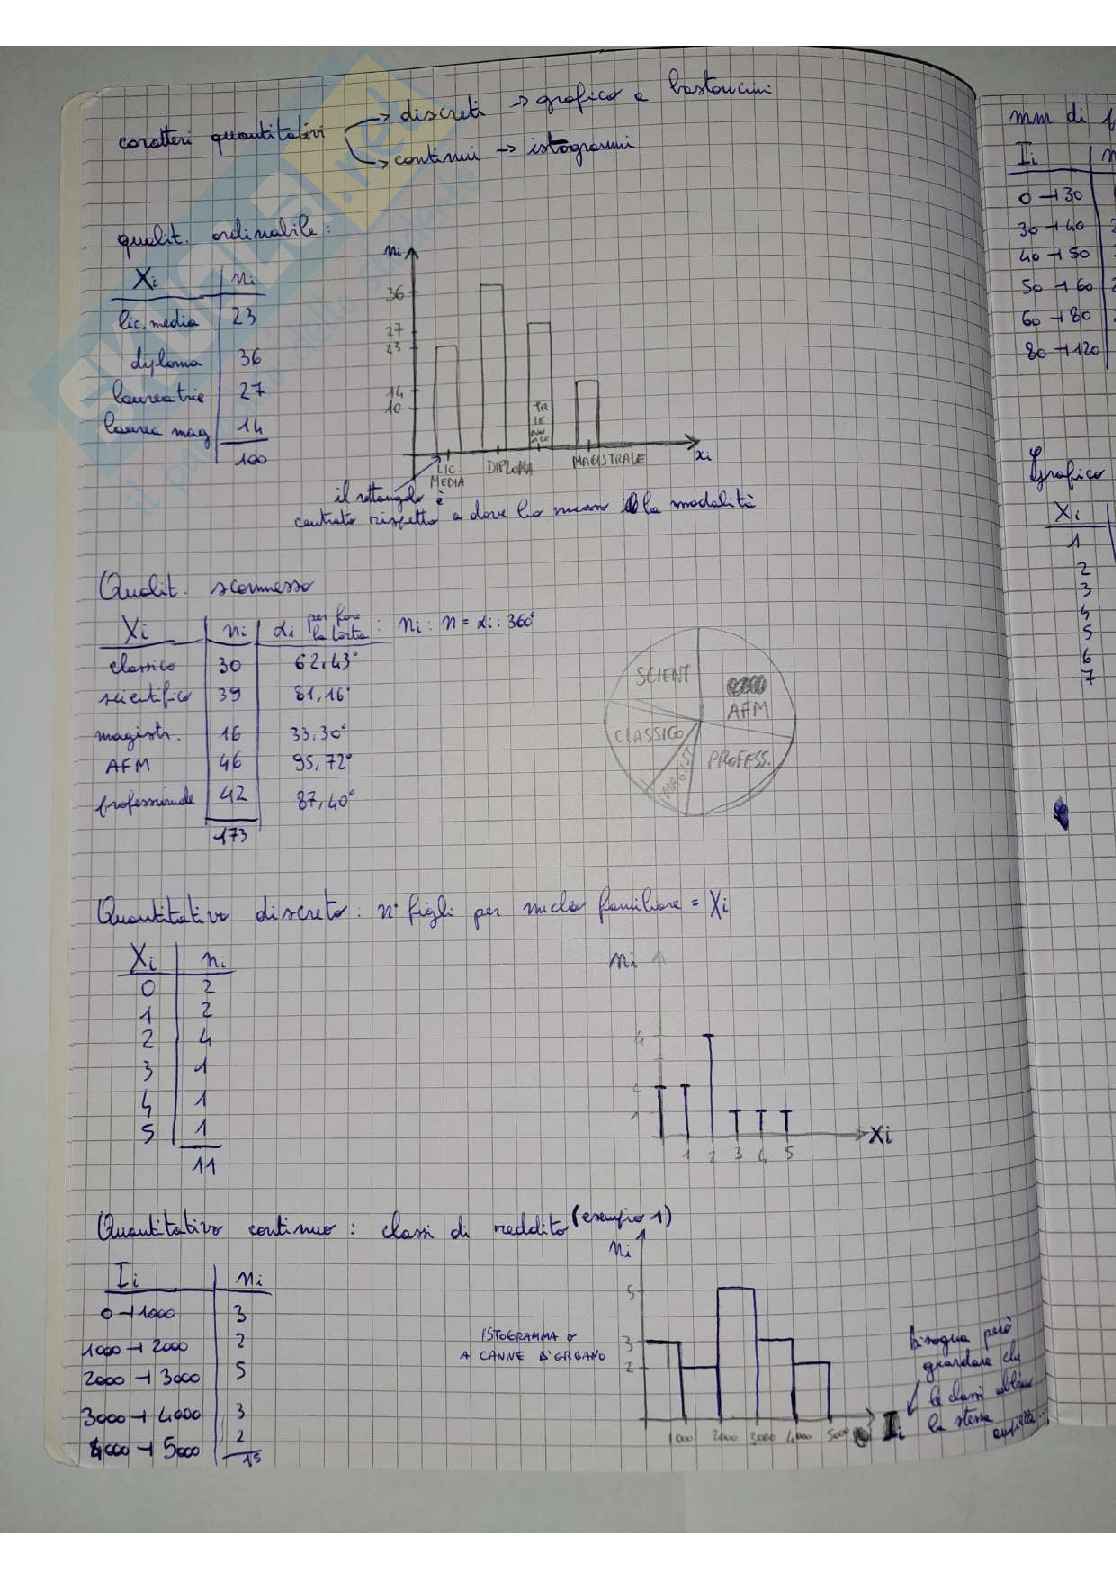 caratteri quantitativi → discreti → grafico a bastoncini
→ continui → istogrammi
qualit. ordinabile:
Xi | ni
lic. media | 23
diploma | 36
laurea trie | 27
laurea mag | 14
100
ni
36
27
23
14
10
LIC MEDIA
DIPLOMA
TRIENNALE
MAGISTRALE
xi
il rettangolo è
centrato rispetto a dove ho messo la modalità
Qualit. sconnesso
Xi | ni | αi per fare la torta : ni : n = αi : 360°
classico | 30 | 62,43°
scientifico | 39 | 81,16°
magistr. | 16 | 33,30°
AFM | 46 | 95,72°
professionale | 42 | 87,40°
173
SCIENT
AFM
CLASSICO
MAGIST
PROFESS.
Quantitativo discreto: n° figli per nucleo familiare = Xi
Xi | ni
0 | 2
1 | 2
2 | 4
3 | 1
4 | 1
5 | 1
11
ni
4
2
1
1 2 3 4 5
Xi
Quantitativo continuo: classi di reddito (esempio 1)
Ii | ni
0 ⊣ 1000 | 3
1000 ⊣ 2000 | 2
2000 ⊣ 3000 | 5
3000 ⊣ 4000 | 3
4000 ⊣ 5000 | 2
15
ni
5
3
2
ISTOGRAMMA o
A CANNE D'ORGANO
1000 2000 3000 4000 5000
Ii
Bisogna però
guardare che
le classi abbiano
la stessa
mm di
Ii
0 ⊣ 30
30 ⊣ 40
40 ⊣ 50
50 ⊣ 60
60 ⊣ 80
80 ⊣ 120
Grafico
Xi
1
2
3
4
5
6
7